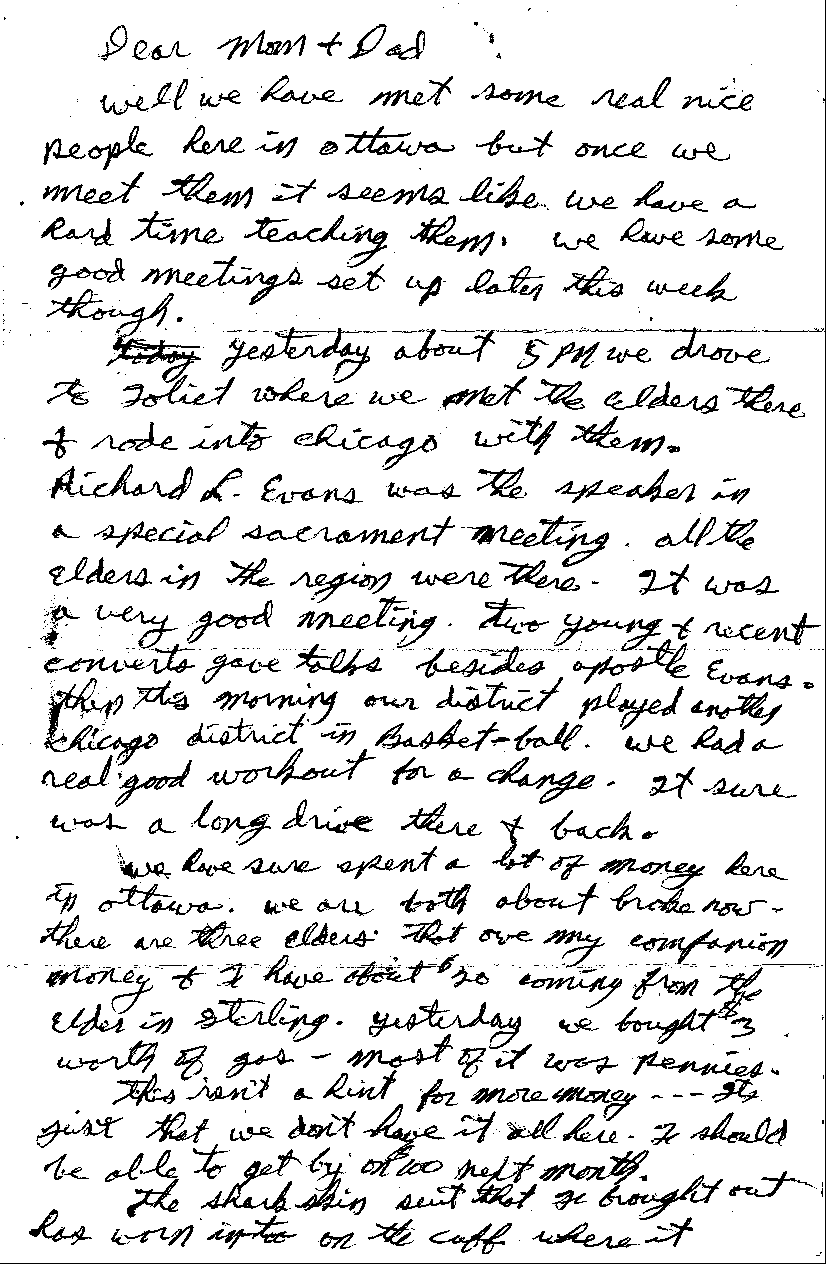 Dear Mom + Dad
well we have met some real nice
people here in ottawa but once we
meet them it seems like we have a
hard time teaching them. we have some
good meetings set up later this week
though.
Today yesterday about 5 PM we drove
to Joliet where we met the elders there
& rode into chicago with them.
Richard L. Evans was the speaker in
a special sacrament meeting. all the
elders in the region were there. It was
a very good meeting. two young & recent
converts gave talks besides apostle Evans.
then this morning our district played another
chicago district in Basket-ball. we had a
real good workout for a change. It sure
was a long drive there & back.
we have sure spent a lot of money here
in ottawa. we are both about broke now.
there are three elders that owe my companion
money & I have about $20 coming from the
elder in Sterling. yesterday we bought $3
worth of gas - most of it was pennies.
This isn't a hint for more money --- Its
just that we don't have it all here. I should
be able to get by on $100 next month.
The shark skin suit that I brought out
has worn in two on the cuff where it